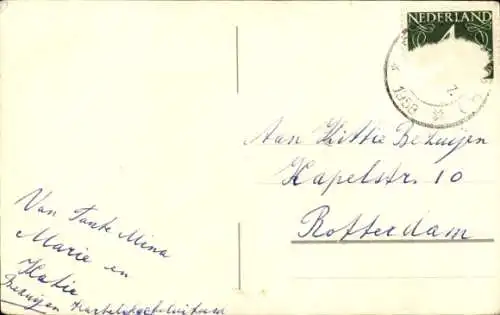 NEDERLAND
4
1958
Aan Kittie Bezuijen
Kapelstr. 10
Rotterdam
Van Tante Mina
Marie en
Katie
Bezuijen Hartelijk gefeliciteerd